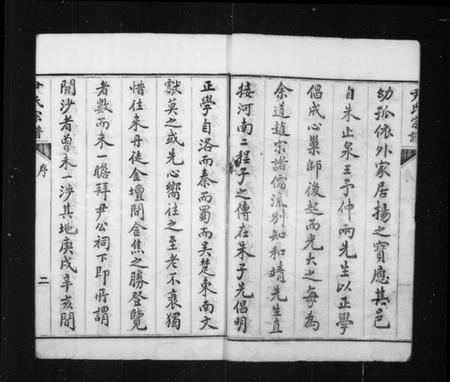 尹氏宗譜
幼孤依外家居揚之寶應其邑
自朱止泉王予仲兩先生以正學
倡成心巢師後起而光大之每為
余道趙宗諸儒流別知和靖先生直
接河南二程子之傳在朱子先倡明
正學自洛而秦而蜀而吳楚東南文
獻莫之或先心嚮往之至老不衰獨
惜往來丹徒金壇間金焦之勝登覽
者數而未一瞻拜尹公祠下即所謂
開沙者曾未一涉其地庚戌辛亥間
尹氏宗譜
序
二